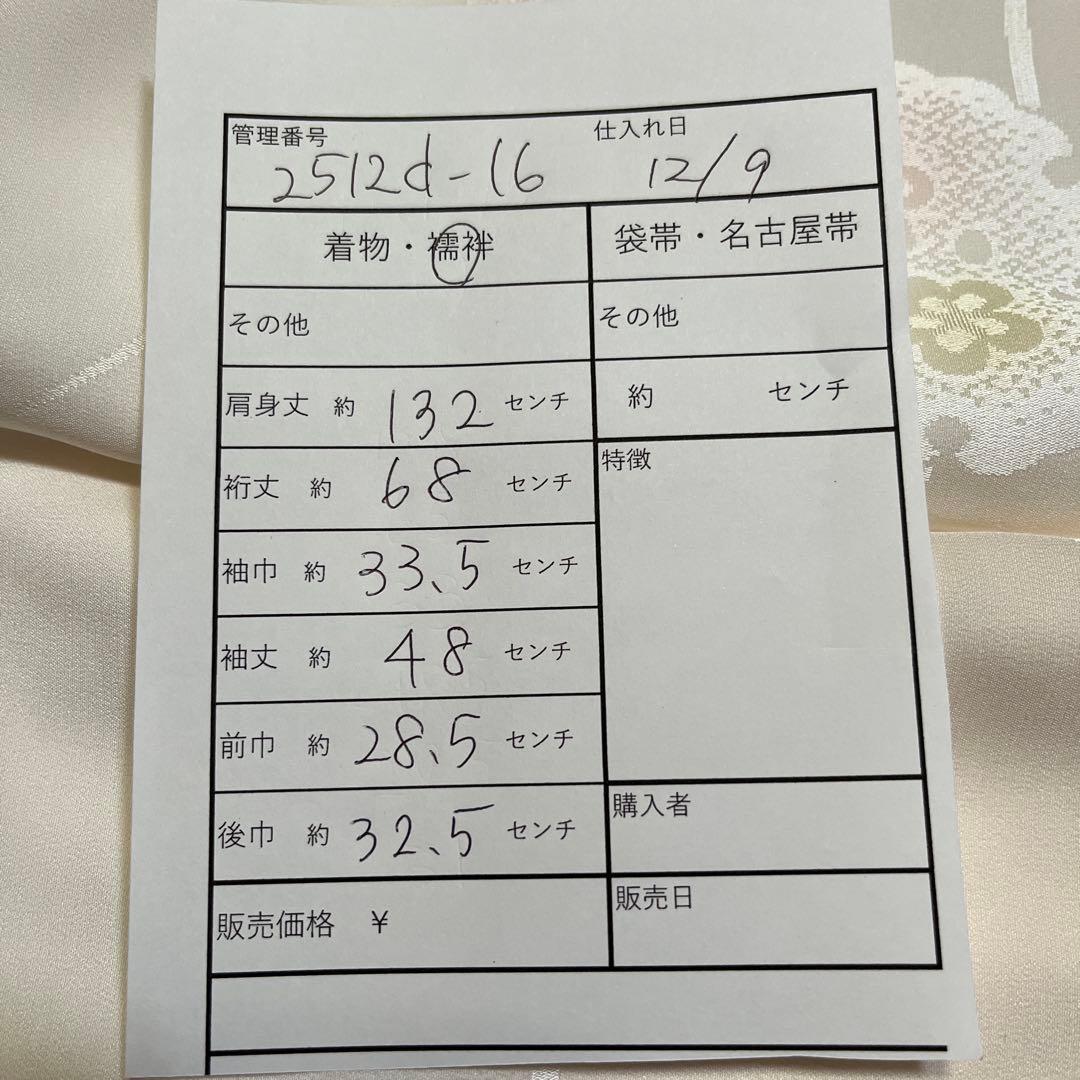 管理番号 仕入れ日
2512d-16 12/9
着物・襦袢 袋帯・名古屋帯
その他 その他
肩身丈 約 132 センチ 約 センチ
裄丈 約 68 センチ 特徴
袖巾 約 33.5 センチ
袖丈 約 48 センチ
前巾 約 28.5 センチ
後巾 約 32.5 センチ 購入者
販売価格 ¥ 販売日